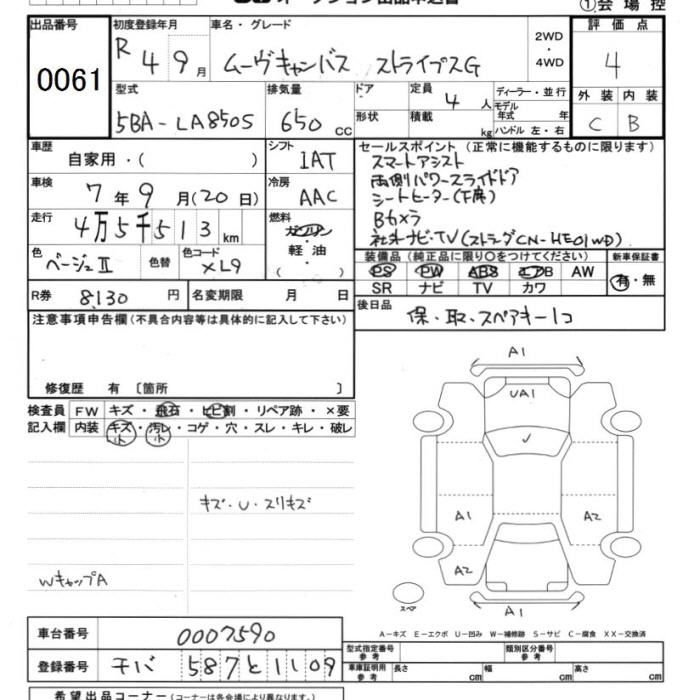 ①会場控
出品番号
0061
初度登録年月
R 4 9月
車名・グレード
ムーヴキャンバス ストライプスG
2WD
・
4WD
評価点
4
外装 内装
C B
型式
5BA-LA850S
排気量
650 cc
ドア
形状
定員
4 人
積載
kg
ディーラー・並行
モデル
年式 年
ハンドル 左・右
車歴
自家用・( )
シフト
IAT
セールスポイント (正常に機能するものに限ります)
スマートアシスト
両側パワースライドドア
シートヒーター(F席)
Bカメラ
社外ナビ・TV(ストラーダCN-HE01WD)
車検
7年9月(20日)
冷房
AAC
走行
4万5千513km
燃料
ガソリン
軽・油
( )
色
ベージュⅡ
色替
色コード
XL9
装備品 (純正品に限り○をつけてください)
PS PW ABS エアB AW
SR ナビ TV カワ
新車保証書
有・無
R券 8,130 円
名変期限 月 日
後日品
保・取・スペアキー1コ
注意事項申告欄(不具合内容等は具体的に記入して下さい)
修復歴 有 〔箇所 〕
検査員 FW キズ・飛石・ヒビ割・リペア跡・×要
記入欄 内装 キズ・汚レ・コゲ・穴・スレ・キレ・破レ
小 小
キズ・U・スリキズ
WキャップA
A1
UA1
A1
A2
A2
スペア
A1
A-キズ E-エクボ U-凹み W-補修跡 S-サビ C-腐食 XX-交換済
車台番号 0007590
登録番号 チバ 587と1109
型式指定番号
参考
類別区分番号
参考
車庫証明用
参考
長さ cm 幅 cm 高さ cm
希望出品コーナー(コーナーは各会場により異なります)